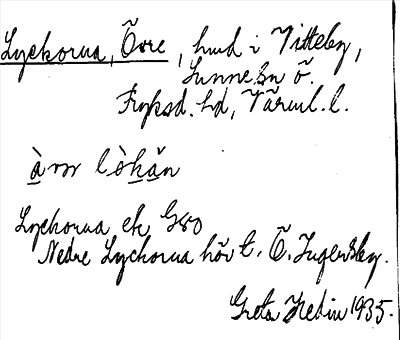 Lyckorna, Övre, hmd i Vitteby,
Sunne sn ö.
Fryksd. hd, Värml. l.
àm lòhän
Lyckorna ek 980
Nedre Lyckorna hör t. Ö. Ingersby.
Greta Hedin 1935.